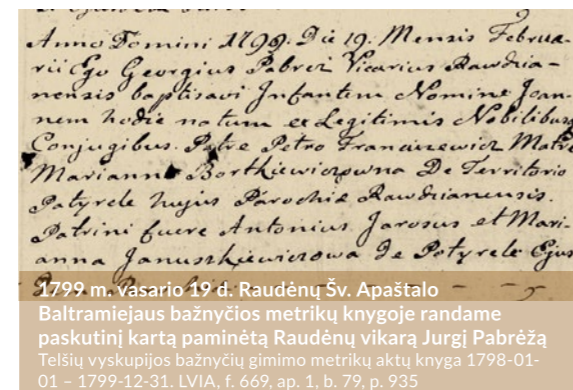 Anno Domini 1799. Die 19. Mensis Februa-
rii Ego Georgius Pabrez Vicarius Rawdzia-
nensis baptisavi Infantem Nomine Joan-
nem hodie natum ex Legitimis Nobilibus
Conjugibus. Patre Petro Franciszewicz Matre
Marianna Bortkiewiczowna De Territorio
Patyrele hujus Parochiæ Rawdzianensis.
Patrini fuere Antonius Jarosus et Mari-
anna Januszkiewiczowa de Potyrele Ejus
1799 m. vasario 19 d. Raudėnų Šv. Apaštalo
Baltramiejaus bažnyčios metrikų knygoje randame
paskutinį kartą paminėtą Raudėnų vikarą Jurgį Pabrėžą
Telšių vyskupijos bažnyčių gimimo metrikų aktų knyga 1798-01-
01 – 1799-12-31. LVIA, f. 669, ap. 1, b. 79, p. 935